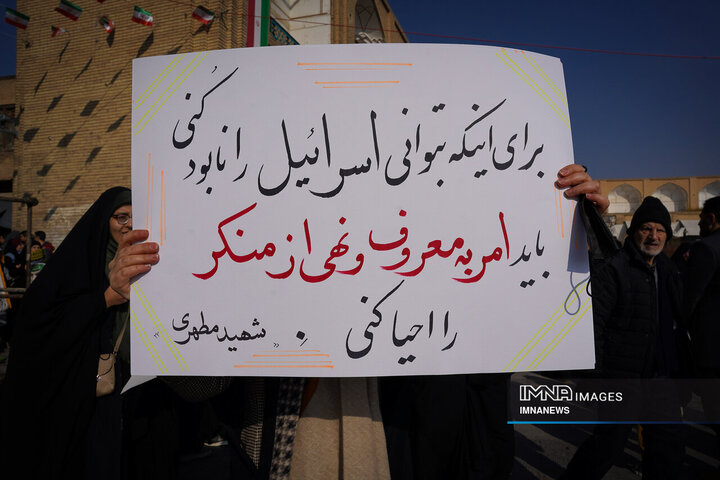 برای اینکه بتوانی اسرائیل را نابود کنی
باید امر به معروف و نهی از منکر
را احیا کنی.
«شهید مطهری»
IMNA IMAGES
IMNANEWS